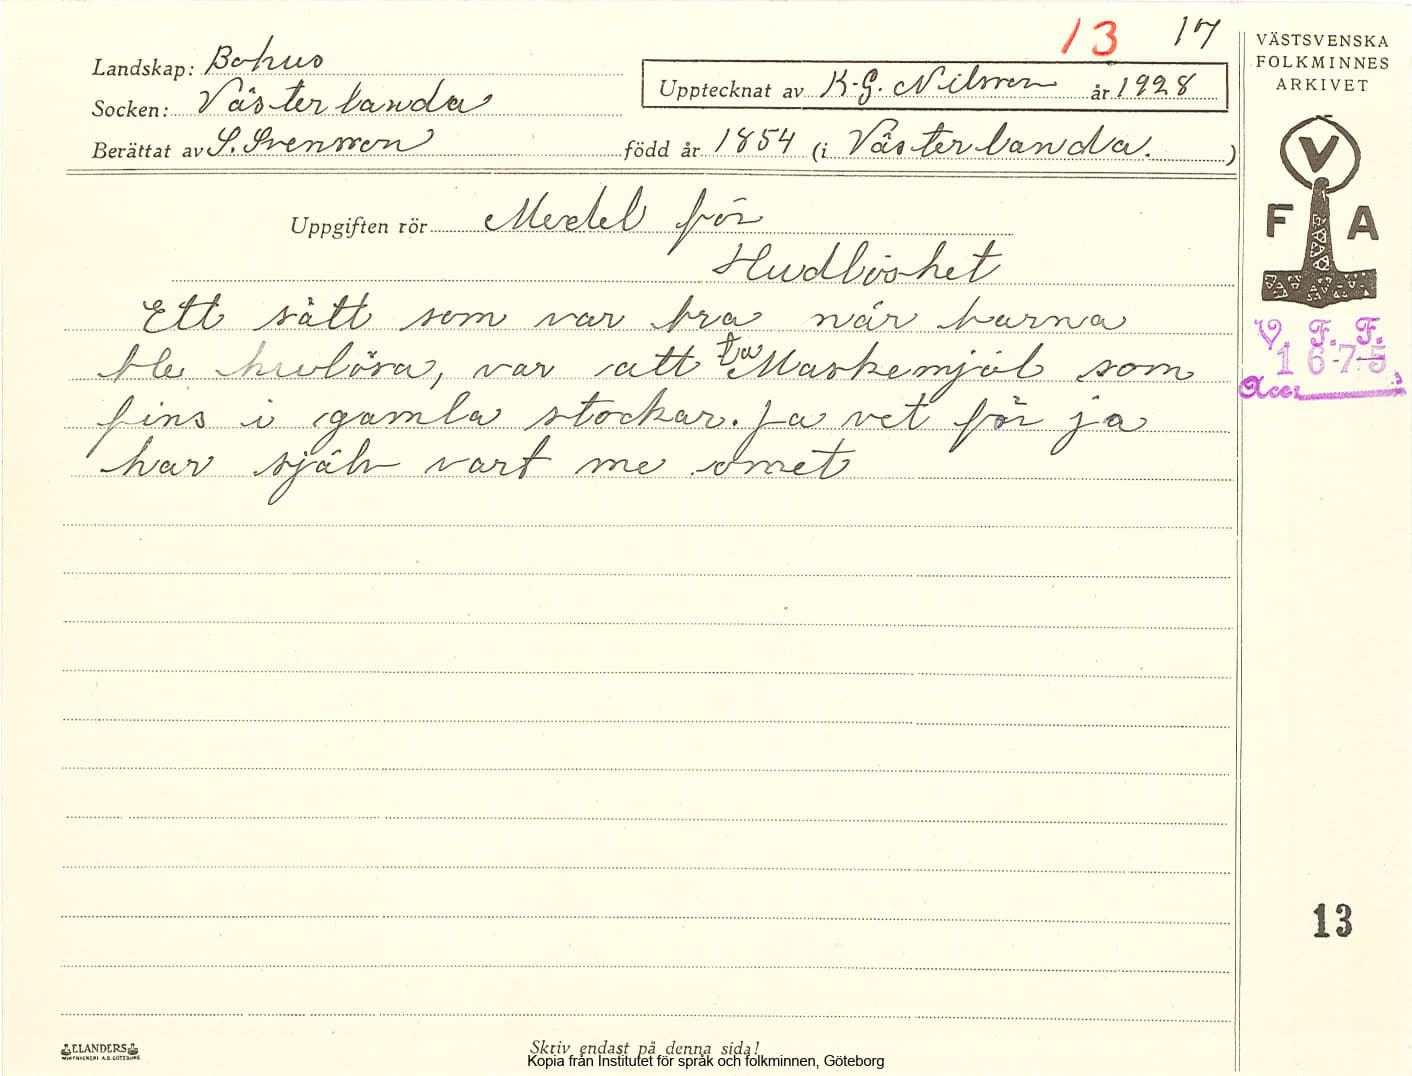 13 17
Landskap: Bohus
Upptecknat av K-G. Nilsson år 1928
Socken: Västerlanda
Berättat av S. Svensson född år 1854 (i Västerlanda. )
Uppgiften rör Medel för
Hudlöshet
Ett sätt som var bra när barna
ble huvlösa, var att ta Maskemjöl som
fins i gamla stockar. Ja vet för ja
har själv vart me omet
VÄSTSVENSKA
FOLKMINNES
ARKIVET
V
F A
V. F. F.
1675
Acc:
13
ELANDERS
GÖTEBORG
Skriv endast på denna sida!
Kopia från Institutet för språk och folkminnen, Göteborg